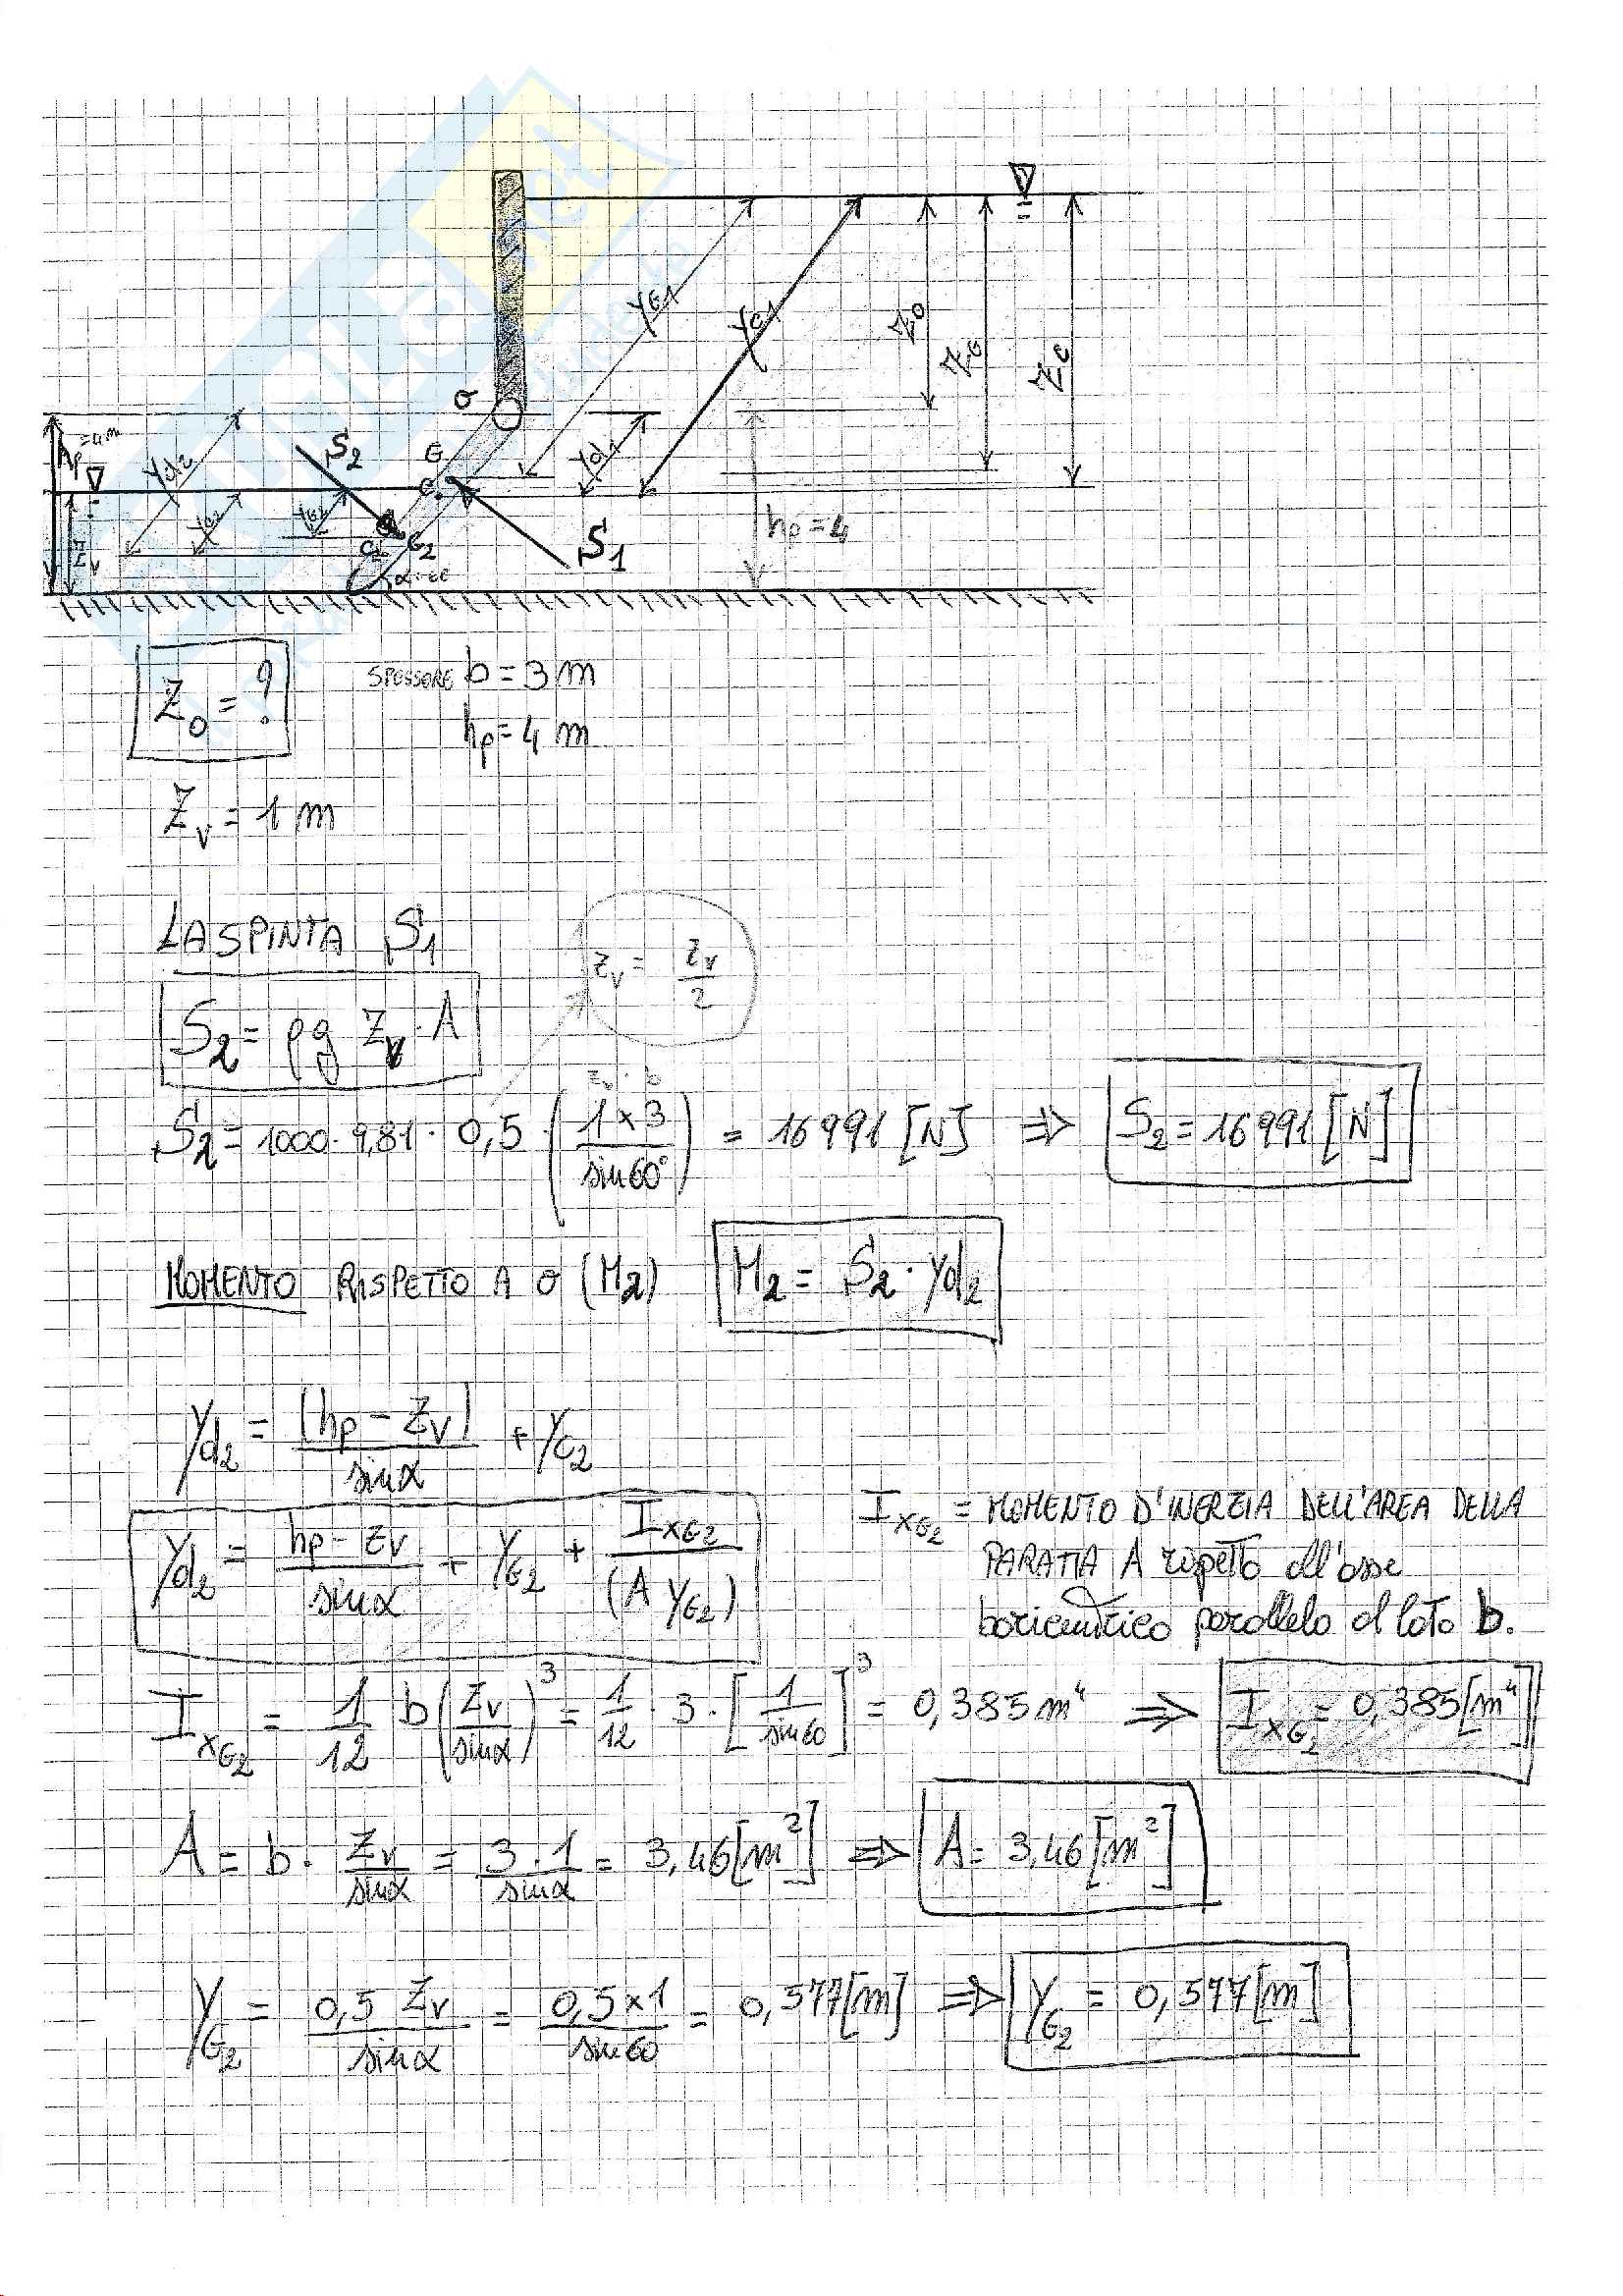 O
G
S2
S1
yG1
yC1
zO
zG
zC
yd1
yd2
hp=4m
hp=4
zv
C2
G2
Zo = ?
SPESSORE b = 3 m
hp = 4 m
Zv = 1 m
LA SPINTA S1
zv = zv/2
S2 = ρg Zv · A
zv · b
S2 = 1000 · 9,81 · 0,5 · (1 x 3 / sin60°) = 16991 [N] ⇒ S2 = 16991 [N]
MOMENTO RISPETTO A O (M2) M2 = S2 · yd2
yd2 = (hp - Zv) / sinα + yC2
yd2 = hp - zv / sinα + yG2 + IxG2 / (A yG2)
IxG2 = MOMENTO D'INERZIA DELL'AREA DELLA
PARATIA A rispetto all'asse
baricentrico parallelo al lato b.
IxG2 = 1/12 b (Zv/sinα)³ = 1/12 · 3 · [1/sin60]³ = 0,385 m⁴ ⇒ IxG2 = 0,385 [m⁴]
A = b · Zv/sinα = 3 · 1/sinα = 3,46 [m²] ⇒ A = 3,46 [m²]
yG2 = 0,5 Zv / sinα = 0,5 x 1 / sin60 = 0,577 [m] ⇒ yG2 = 0,577 [m]